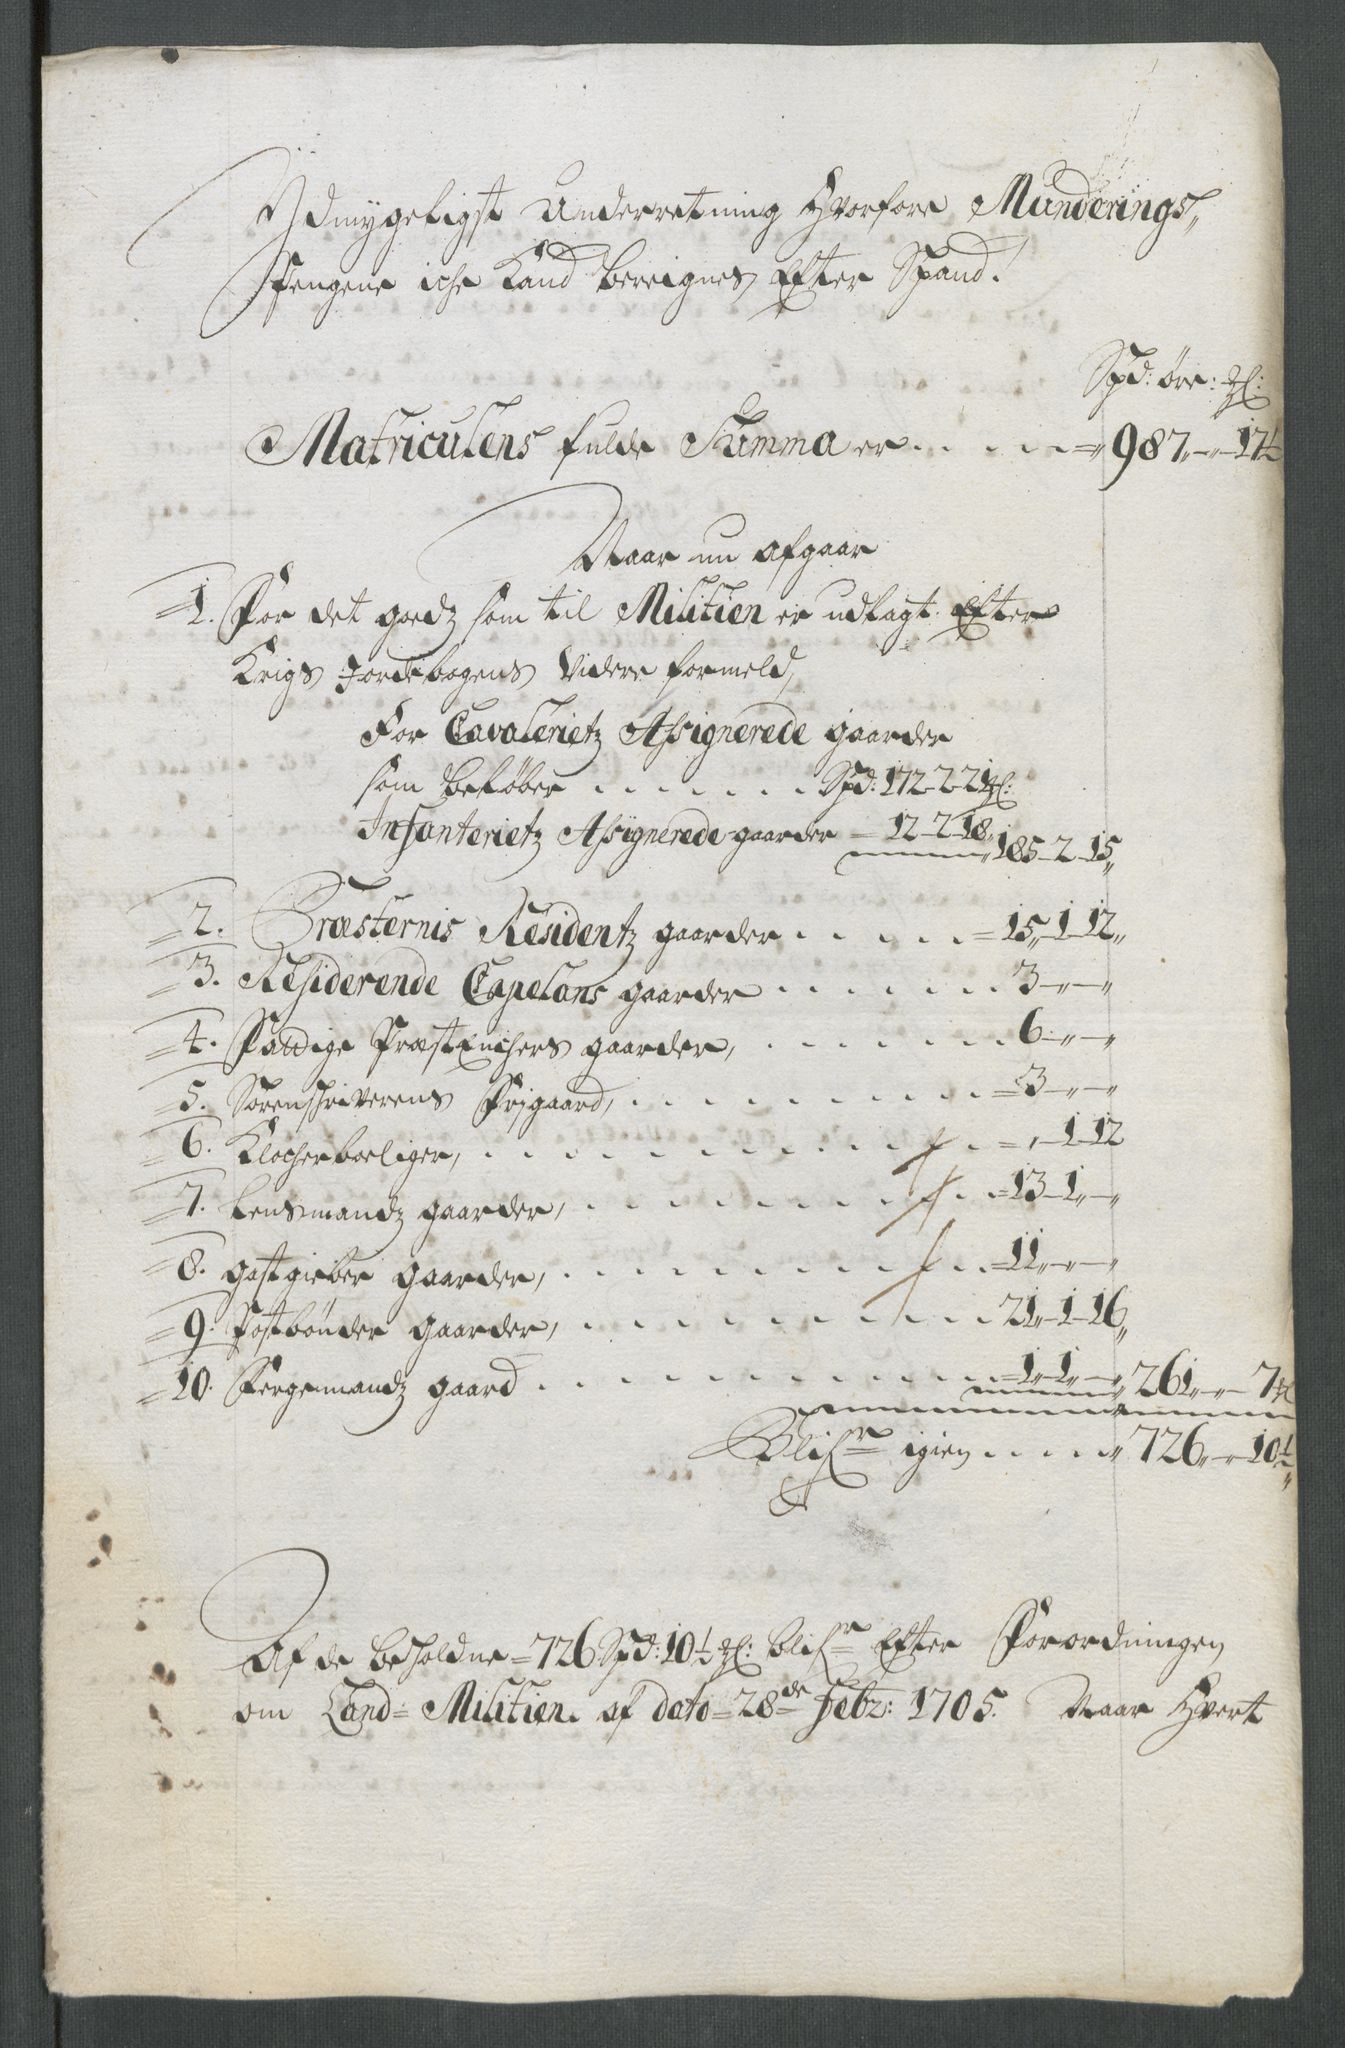 Ydmygeligst Underretning Hvorfore Munderings
Pengene iche Kand bereignes Efter Spand.
Spd: øre: ɟl:
Matriculens fulde Summa er . . . . . = 987 „ - „ - 17½
Naar nu afgaar
1. For det goedz som til Militien er udlagt Efter
Krigs Jordebogens Videre formeld,
For Cavaleriets Assignerede gaarder
som beløber . . . . . . . Spd: 172-2-21
Infanterietz Assignerede gaarder - 12-2-18
185-2-15
2. Præsternis Residentz gaarder . . . . . = 15-1-12
3. Residerende Capelans gaarder . . . . . . 3 - „ - „
4. Fattige Præst Enchers gaarder, . . . . . . . 6 - „ - „
5. Sorenschriverens Frjgaard, . . . . . . . . . = 3 - „ - „
6. Klocherboeliger, . . . . . . . . . . . = „ - 1-12
7. Lensmandz gaarder, . . . . . . . . . = 13-1 - „
8. gastgieber gaarder, . . . . . . . . . = 11 - „ - „
9. Postbønder gaarder, . . . . . . . . . . 21-1-16
10. Fergemandz gaard . . . . . . . . . . . = 1-1 - „ 261 - „ - 7
Blifr igien . . . . . 726 - „ - 10½
Af de beholdne = 726 Spd: 10½ blifr Efter Forordningen
om Land = Militien. af dato = 28de Febr: 1705. Naar Hvert